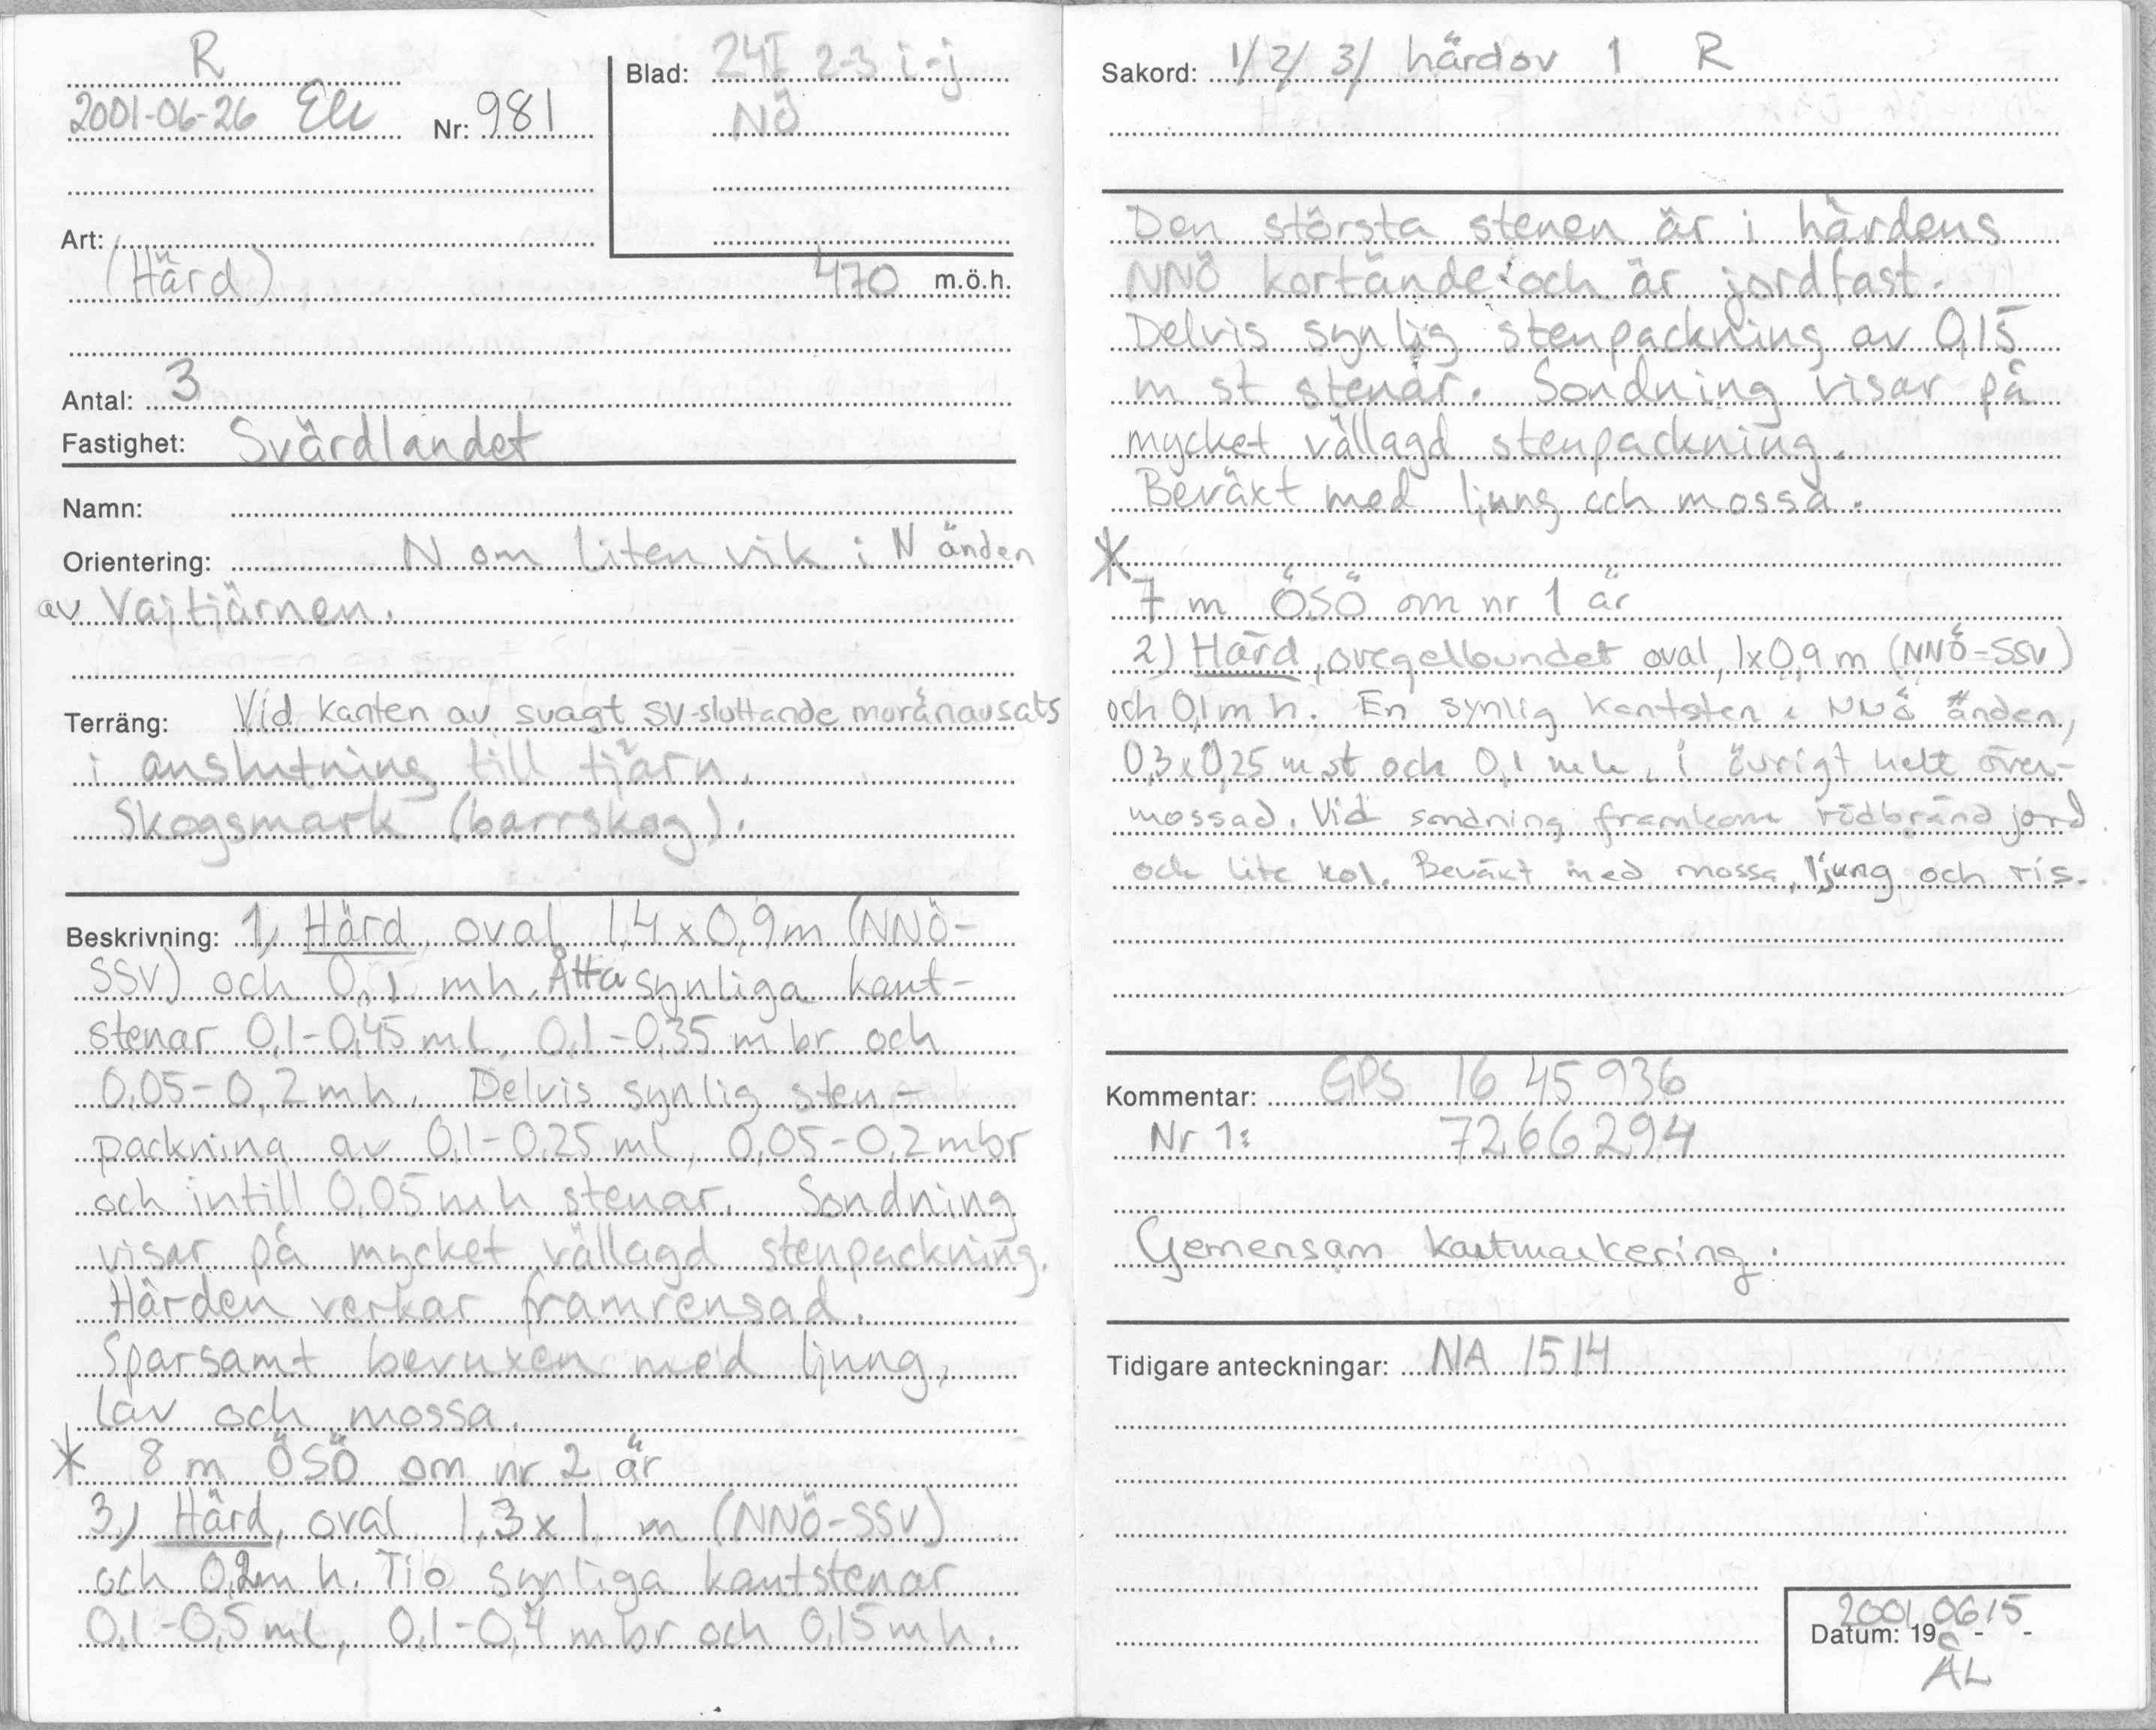 R
2001-06-26 Elc Nr: 981
Blad: 24I 2-3 i-j
NÖ
Art:
(Härd)
470 m.ö.h.
Antal: 3
Fastighet: Svärdlandet
Namn:
Orientering: N om liten vik i N änden
av Vajtjärnen.
Terräng: Vid kanten av svagt SV-sluttande moränavsats
i anslutning till tjärn.
Skogsmark (barrskog).
Beskrivning: 1) Härd, oval 1,4x0,9m (NNÖ-
SSV) och 0,1 mh. Åtta synliga kant-
stenar 0,1-0,45 ml, 0,1-0,35 m br och
0,05-0,2 mh. Delvis synlig sten-
packning av 0,1-0,25 ml, 0,05-0,2 mbr
och intill 0,05 mh stenar. Sondning
visar på mycket vällagd stenpackning.
Härden verkar framrensad.
Sparsamt bevuxen med ljung,
lav och mossa.
* 8 m ÖSÖ om nr 2 är
3.) Härd, oval 1,3x1 m (NNÖ-SSV)
och 0,2m h. Tio synliga kantstenar
0,1-0,5 ml, 0,1-0,4 mbr och 0,15 mh.
Sakord: 1/ 2/ 3/ härdöv 1 R
Den största stenen är i härdens
NNÖ kortände och är jordfast.
Delvis synlig stenpackning av 0,15
m st stenar. Sondning visar på
mycket vällagd stenpackning.
Beväxt med ljung och mossa.
*
7 m ÖSÖ om nr 1 är
2) Härd, oregelbundet oval, 1x0,9 m (NNÖ-SSV)
och 0,1 m h. En synlig kantsten i NNÖ änden,
0,3x0,25 m st och 0,1 mh, i övrigt helt över-
mossad. Vid sondning framkom rödbränd jord
och lite kol. Beväxt med mossa, ljung och ris.
Kommentar: GPS 16 45 936
Nr 1: 7266294
Gemensam kartmarkering.
Tidigare anteckningar: NA 1514
2001 0615
Datum: 19 - -
ÅL